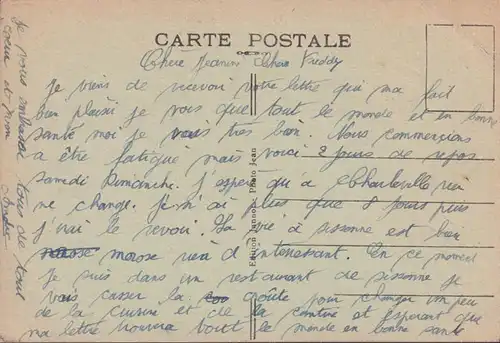 CARTE POSTALE
Chere Jeanine Chere Freddy
Je viens de recevoir votre lettre qui ma fait
bien plaisir je vois que tout le monde et en bonne
santé moi je vais tres bien. Nous commencions
a être fatigué mais voici 2 jours de repos
samedi Dimanche. J'espere qu'a Charleville rien
ne change. Je n'ai plus que 8 jours puis
j'irai le revoir. La vie a sissonne est bien
morose rien d'interessant. En ce moment
Je suis dans un restaurant de sissonne je
vais casser la croûte pour changer un peu
de la cuisine et de la cantine et esperant que
ma lettre trouvera tout le monde en bonne santé
Je vous embrasse tous de tout
coeur et mon
Edition Jeannot Photo Jean